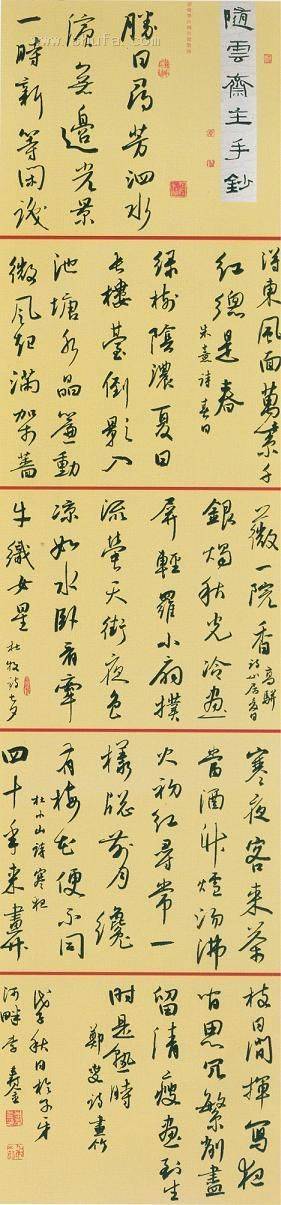 隨雲齋主手鈔
勝日尋芳泗水
濱無邊光景
一時新等閑識
得東風面萬紫千
紅總是春
朱熹詩 春日
綠樹陰濃夏日
長樓臺倒影入
池塘水晶簾動
微風起滿架薔
薇一院香 高駢詩山居夏日
銀燭秋光冷畫
屏輕羅小扇撲
流螢天街夜色
涼如水卧看牽
牛織女星 杜牧詩七夕
寒夜客來茶
當酒竹爐湯沸
火初紅尋常一
樣牕前月纔
有梅花便不同
杜小山詩寒夜
四十年來畫竹
枝日間揮寫夜
間思冗繁削盡
留清瘦畫到生
時是熟時
鄭燮詩畫竹
戊子秋日於子牙
河畔李